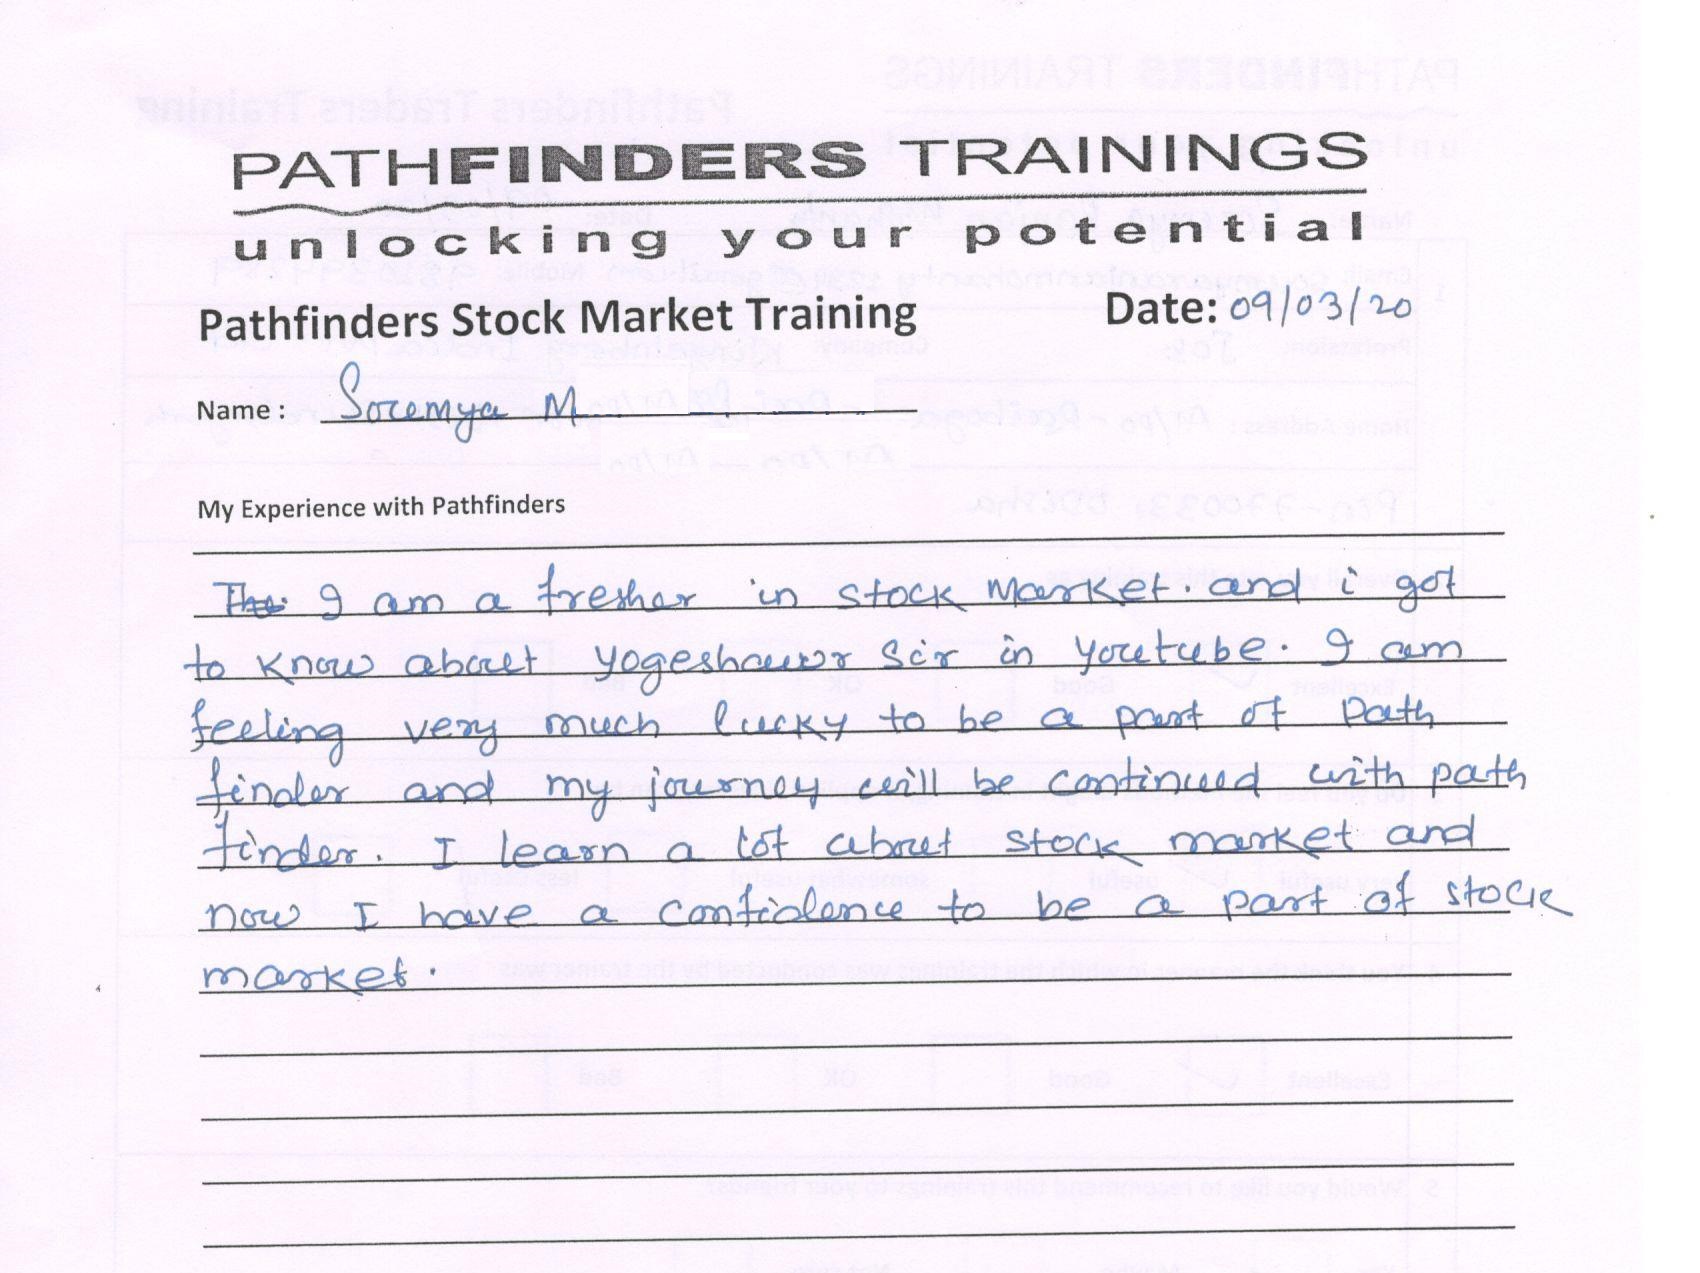 PATHFINDERS TRAININGS
unlocking your potential
Pathfinders Stock Market Training Date: 09/03/20
Name: Soumya M
My Experience with Pathfinders
I am a fresher in stock Market. and i got
to know about yogeshwar Sir in youtube. I am
feeling very much lucky to be a part of Path
finder and my journey will be continued with path
finder. I learn a lot about stock market and
now I have a confidence to be a part of stock
market.